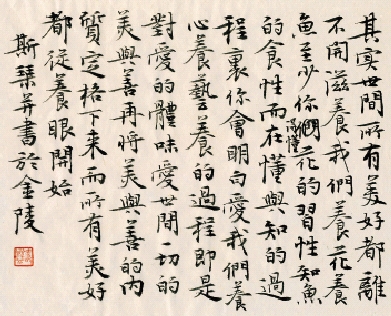 其实世间所有美好都離
不開滋養我們養花養
魚至少你們得懂花的習性知魚
的食性而在懂與知的過
程裏你會明白愛我們養
心養藝養的過程即是
對愛的體味愛世間一切的
美與善再將美與善的內
質定格下来而所有美好
都從養眼開始
斯琹并書於金陵